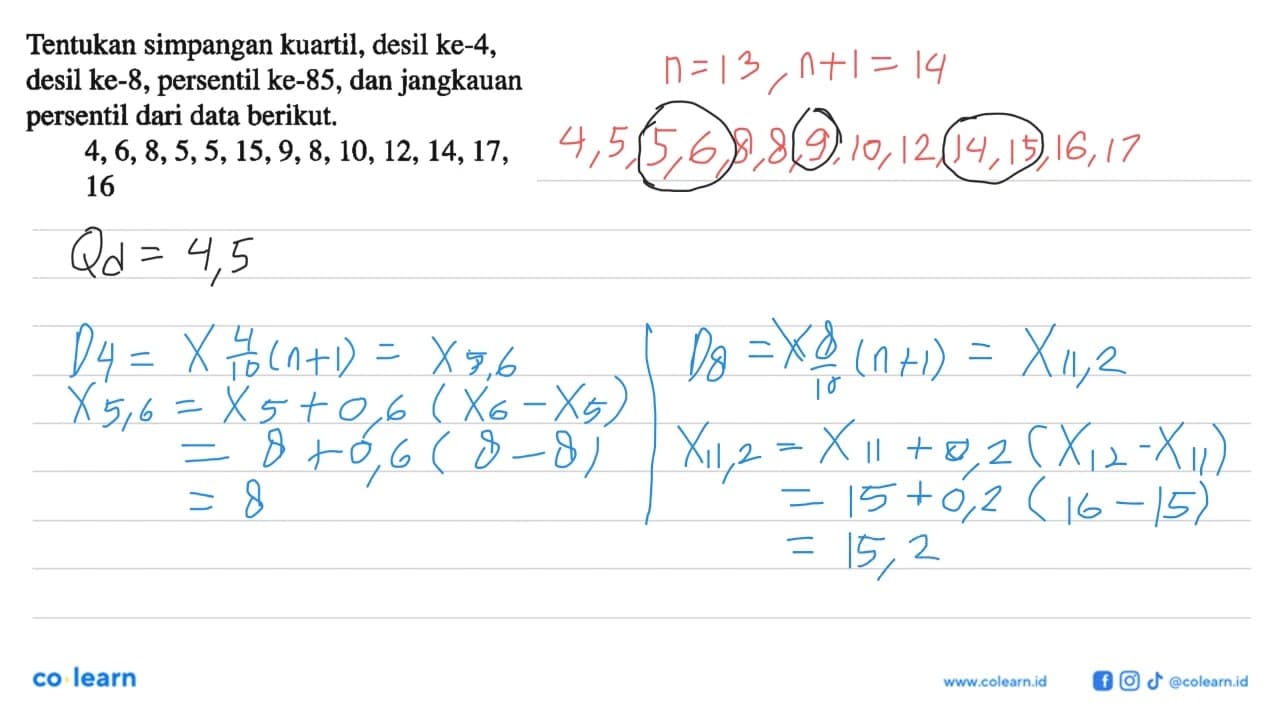 Tentukan simpangan kuartil, desil ke-4,
desil ke-8, persentil ke-85, dan jangkauan
persentil dari data berikut.
4, 6, 8, 5, 5, 15, 9, 8, 10, 12, 14, 17,
16
n=13, n+1=14
4,5,5,6,8,8,9,10,12,14,15,16,17
Qd = 4,5
D4 = X 4/10 (n+1) = X 5,6
X 5,6 = X5 + 0,6 (X6 - X5)
= 8 + 0,6 (8 - 8)
= 8
D8 = X 8/10 (n+1) = X 11,2
X11,2 = X11 + 0,2 (X12 - X11)
= 15 + 0,2 (16 - 15)
= 15,2
co learn
www.colearn.id
@colearn.id